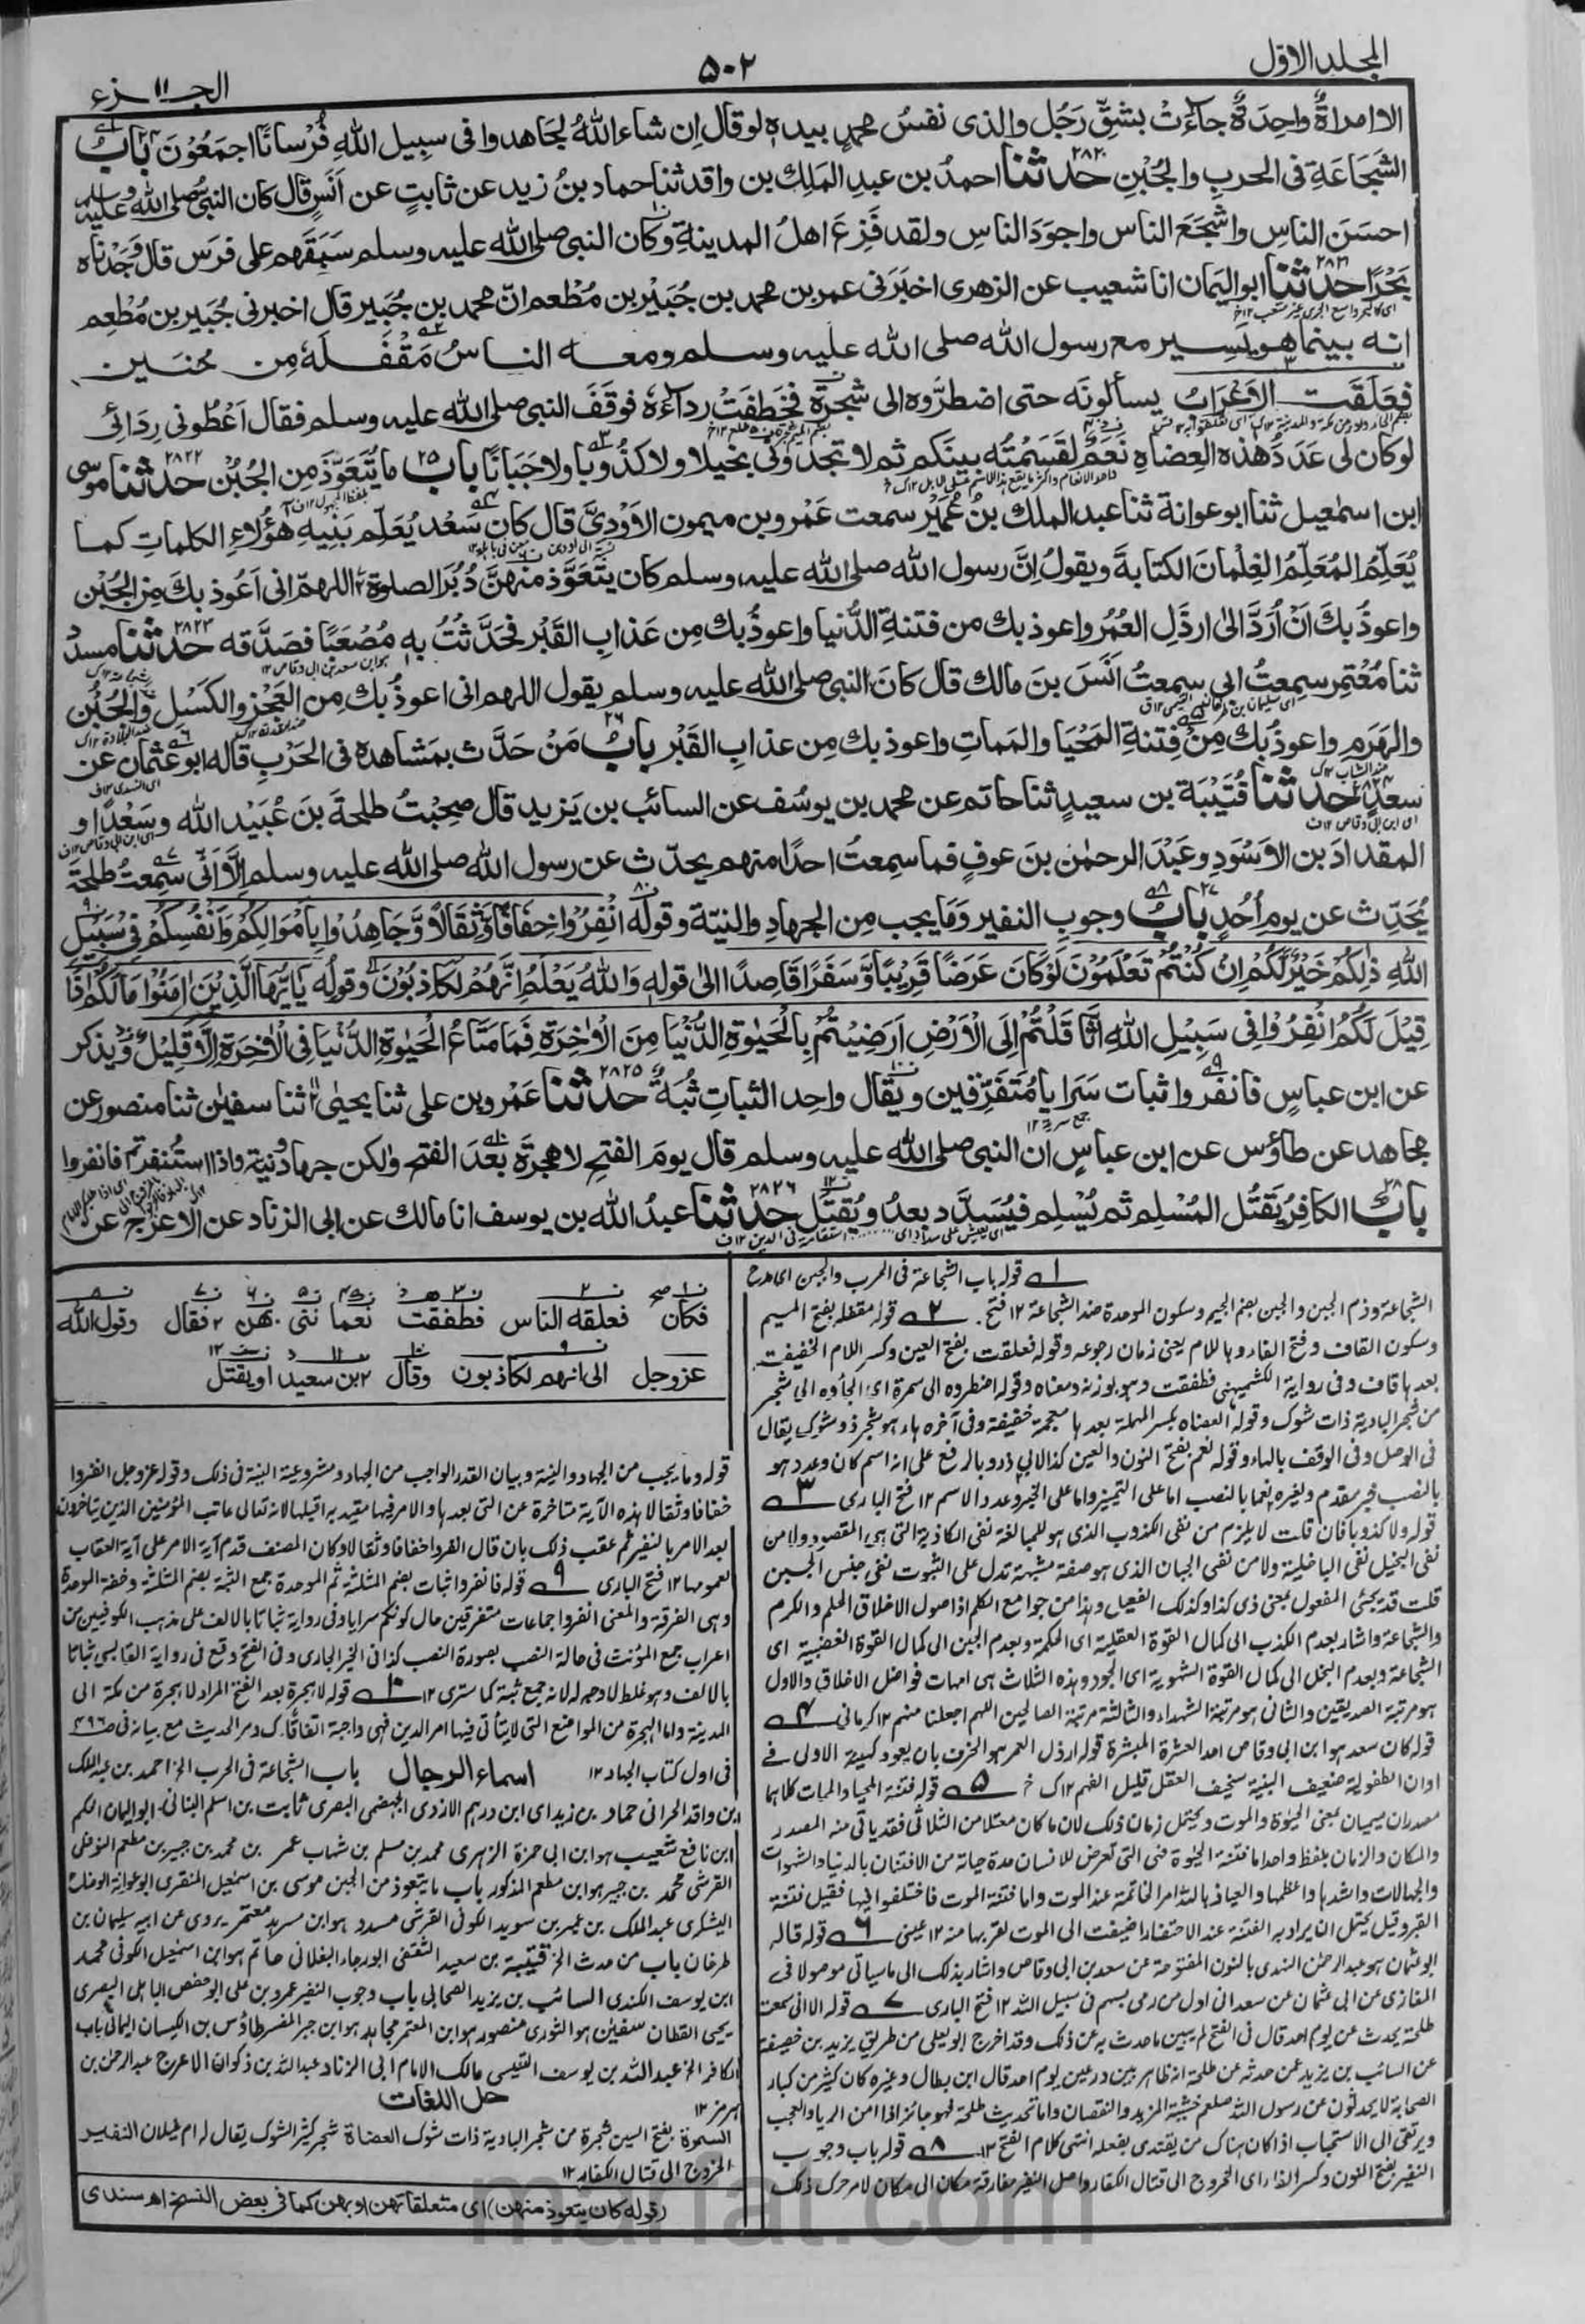 المجلد الاول
۵۰۲
الجزء ۱۱
الا امراةٌ واحِدَةٌ جاءَتْ بشِقِّ رَجُل والذى نفسُ محمدٍ بيده لو قال اِن شاء اللهُ لجَاهدوا فى سبِيل اللهِ فُرْسانًا اجمَعُوْنَ بابُ ۲۴
الشَجَاعَةِ فى الحربِ والجُبْنِ ۲۸۲۰ حدثنا احمدُ بن عبدِ المَلِك بن واقد ثنا حماد بنُ زيد عن ثابتٍ عن اَنَسٍ قال كان النبىُّ صلى الله عليه وسلم
احسَنَ الناسِ واشجَعَ الناس واجوَدَ الناسِ ولقد فَزِعَ اهلُ المدينةِ وكان النبى صلى الله عليه وسلم سَبَقَهم على فرَس قال وَجَدْناه
بَحْرًا ۲۸۲۱ حدثنا ابو اليَمان انا شعيب عن الزهرى اخبَرَنى عمر بن محمد بن جُبَيْر بن مُطْعم انّ محمد بن جُبَير قال اخبرنى جُبَير بن مُطْعِم
انه بينما هو يَسير مع رسول الله صلى الله عليه وسلم ومعه الناسُ مَقْفَلَهٗ مِن حُنَين
فعَلَقَت الاَعْرَابُ يسألونَه حتى اضطرُّوه الى شجرَة فخَطِفَتْ رداءَهٗ فوقَفَ النبى صلى الله عليه وسلم فقال اَعْطُونى رِدَائى
لو كان لى عَدَدُ هٰذه العِضاهِ نَعَمٌ لقَسَمْتُه بينَكم ثم لا تجدُونى بَخيلا ولا كذُوبا ولا جَبَانًا باب ۲۵ ما يُتَعَوَّذُ مِن الجُبْن ۲۸۲۲ حدثنا موسى
ابن اسمٰعيل ثنا ابو عوانة ثنا عبد الملك بن عُمَيْر سمعت عَمْرو بن ميمون الاَوْدِىَّ قال كان سَعْد يُعَلِّم بَنِيهِ هؤُلاءِ الكلماتِ كما
يُعَلِّمُ المُعَلِّمُ الغِلْمانَ الكتابةَ ويقولُ اِنَّ رسول الله صلى الله عليه وسلم كان يتَعَوَّذ منهنَّ دُبُرَ الصلوة اللهمّ انى اَعُوذ بكَ مِنَ الجُبْن
واعوذُ بكَ اَنْ اُرَدَّ الىٰ ارذَلِ العُمُرِ واعوذ بك من فتنةِ الدُّنيا واعوذُ بك مِن عَذابِ القَبْر فحَدَّثْتُ به مُصْعَبًا فصَدَّقه ۲۸۲۳ حدثنا مسدد
ثنا مُعْتَمِر سمِعتُ ابى سمِعتُ اَنَسَ بنَ مالك قال كانَ النبى صلى الله عليه وسلم يقول اللهم انى اعوذُ بك مِن العَجْزِ والكَسَل والجُبْن
والهَرَمِ واعوذ بك مِنْ فِتنةِ المَحْيَا والمَماتِ واعوذ بك مِن عذابِ القَبْر بابُ ۲۶ مَنْ حَدَّث بمَشاهدِه فى الحَرْبِ قاله ابو عثمان عن
سعدٍ ۲۸۲۴ حدثنا قُتَيْبَة بن سعيدٍ ثنا حاتم عن محمد بن يوسُف عن السائب بن يَزيد قال صحِبْتُ طلحةَ بنَ عُبَيْد الله وسَعْدًا و
المقدادَ بن الاَسْوَدِ وعَبْدَ الرحمٰن بنَ عوفٍ فما سمِعتُ احدًا منهم يحدّث عن رسول الله صلى الله عليه وسلم اِلّا اَنّى سمِعتُ طلحةَ
يُحَدِّث عن يومِ اُحُدٍ بابُ ۲۷ وجوبِ النفير وَما يجب مِن الجهادِ والنيّة وقوله انْفِرُوْا خِفَافًا وَّثِقَالًا وَّجَاهِدُوْا بِاَمْوَالِكُمْ وَاَنْفُسِكُمْ فِىْ سَبِيْلِ
اللهِ ذٰلِكُمْ خَيْرٌ لَّكُمْ اِنْ كُنْتُمْ تَعْلَمُوْنَ لَوْ كَانَ عَرَضًا قَرِيْبًا وَّسَفَرًا قَاصِدًا الىٰ قوله وَاللهُ يَعْلَمُ اِنَّهُمْ لَكَاذِبُوْنَ وقولِه يَا يُّهَا الَّذِيْنَ اٰمَنُوْا مَا لَكُمْ اِذَا
قِيْلَ لَكُمُ انْفِرُوْا فِى سَبِيْلِ اللهِ اثَّا قَلْتُمْ اِلَى الْاَرْضِ اَرَضِيْتُمْ بِالْحَيٰوةِ الدُّنْيَا مِنَ الْاٰخِرَةِ فَمَا مَتَاعُ الْحَيٰوةِ الدُّنْيَا فِى الْاٰخِرَةِ اِلَّا قَلِيْلٌ ويُذكر
عن ابن عباسٍ فانفروا ثبات سَرَايا مُتَفَرّقين ويُقال واحِد الثباتِ ثُبَةٌ ۲۸۲۵ حدثنا عَمْرو بن على ثنا يحيىٰ ثنا سفيٰن ثنا منصور عن
مجاهد عن طاؤس عن ابن عباسٍ ان النبى صلى الله عليه وسلم قال يومَ الفتحِ لا هجرَةَ بعْدَ الفتح ولكن جهاد ونية واذا استُنفِرتم فانفروا
بابُ ۲۸ الكافِرُ يَقتُل المُسْلِم ثم يُسْلِم فيُسَدَّد بعدُ ويُقتَل ۲۸۲۶ حدثنا عبدُ الله بن يوسف انا مالك عن ابى الزناد عن الاعرج عن
فكان فعلقه الناس فطفقت نعما ننى بهن فقال وقول الله
عزوجل الى انهم لكاذبون وقال ابن سعيد اويقتل
قوله باب الشجاعة فى الحرب والجبن اى مدح
الشجاعة وذم الجبن والجبن بضم الجيم وسكون الموحدة ضد الشجاعة ۱۲ فتح. ۲ قوله مقفله بفتح الميم
وسكون القاف وفتح الفاء وباللام يعنى زمان رجوعه وقوله فعلقت بفتح العين وكسر اللام الخفيفة
بعدها قاف وفى رواية الكشميهنى فطفقت وهو بوزنه ومعناه وقوله اضطروه الى سمرة اى الجأوه الى شجر
من شجر البادية ذات شوك وقوله العضاه بكسر المهملة بعدها معجمة خفيفة وفى آخره هاء هو شجر ذو شوك يقال
فى الوصل وفى الوقف بالهاء وقوله نعم بفتح النون والعين كذا لابى ذر وبالرفع على انه اسم كان وعدد هو
بالنصب خبر مقدم ولغيره نعما بالنصب اما على التمييز واما على الخبر وعدد الاسم ۱۲ فتح البارى ۳
قوله ولا كذوبا فان قلت لا يلزم من نفى الكذوب الذى هو للمبالغة نفى الكاذبية التى هى المقصود ولا من
نفى البخيل نفى الباخلية ولا من نفى الجبان الذى هو صفة مشبهة تدل على الثبوت نفى جنس الجبن
والشجاعة واشار بعدم الكذب الى كمال القوة العقلية اى الحكمة وبعدم الجبن الى كمال القوة الغضبية اى
الشجاعة وبعدم البخل الى كمال القوة الشهوية اى الجود وهذه الثلاث هى امهات فواضل الاخلاق والاول
هو مرتبة الصديقين والثانى هو مرتبة الشهداء والثالثة مرتبة الصالحين اللهم اجعلنا منهم ۱۲ كرمانى ۴
قوله كان سعد هو ابن ابى وقاص احد العشرة المبشرة قوله ارذل العمر هو الخرف بان يعود كهيئة الاولى فى
اوان الطفولية ضعيف البنية سخيف العقل قليل الفهم ۱۲ ك خ ۵ قوله فتنة المحيا والممات كلاهما
مصدران ميميان بمعنى الحيوة والموت ويحتمل زمان ذلك لان ما كان معتلا من الثلاثى فقد ياتى منه المصدر
والمكان والزمان بلفظ واحد اما فتنة الحيوة فهى التى تعرض للانسان مدة حياته من الافتتان بالدنيا والشهوات
والجهالات واشدها واعظمها والعياذ بالله امر الخاتمة عند الموت واما فتنة الموت فاختلفوا فيها فقيل فتنة
القبر وقيل يحتمل ان يراد به الفتنة عند الاحتضار اضيفت الى الموت لقربها منه ۱۲ عينى ۶ قوله قاله
ابو عثمان هو عبد الرحمن النهدى بالنون المفتوحة عن سعد بن ابى وقاص واشار بذلك الى ما سياتى موصولا فى
المغازى عن ابى عثمان عن سعد انى اول من رمى بسهم فى سبيل الله ۱۲ فتح البارى ۷ قوله الا انى سمعت
طلحة يحدث عن يوم احد قال فى الفتح لم يبين ما حدث به عن ذلك وقد اخرج ابو يعلى من طريق يزيد بن خصيفة
عن السائب بن يزيد عمن حدثه عن طلحة انه ظاهر بين درعين يوم احد قال ابن بطال وغيره كان كثير من كبار
الصحابة لا يحدثون عن رسول الله صلعم خشية المزيد والنقصان واما تحديث طلحة فهو جائز اذا امن الريا والعجب
ويرتقى الى الاستحباب اذا كان هناك من يقتدى بفعله انتهى كلام الفتح ۱۲ ۸ قوله باب وجوب
النفير بفتح النون وكسر الفاء اى الخروج الى قتال الكفار واصل النفير مفارقة مكان الى مكان لامر حرك ذلك
قوله وما يجب من الجهاد والنية وبيان القدر الواجب من الجهاد ومشروعية النية فى ذلك وقوله عزوجل انفروا
خفافا وثقالا هذه الآية متاخرة عن التى بعدها والامر فيها مقيد بما قبلها لانه تعالى عاتب المؤمنين الذين يتاخرون
بعد الامر بالنفير ثم عقب ذلك بان قال انفروا خفافا وثقالا وكان المصنف قدم آية الامر على آية العقاب
لعمومها ۱۲ فتح البارى ۹ قوله فانفروا ثبات بضم المثلثة ثم الموحدة جمع الثبة بضم المثلثة وخفة الموحدة
وهى الفرقة والمعنى انفروا جماعات متفرقين حال كونكم سرايا وفى رواية ثباتا بالالف على مذهب الكوفيين من
اعراب جمع المؤنث فى حالة النصب بصورة النصب كذا فى الخير الجارى وفى الفتح وقع فى رواية القابسى ثباتا
بالالف وهو غلط لا وجه له لانه جمع ثبة كما سترى ۱۲ ۱۰ قوله لا هجرة بعد الفتح المراد لا هجرة من مكة الى
المدينة واما الهجرة من المواضع التى لا يتأتى فيها امر الدين فهى واجبة اتفاقا ك ومر الحديث مع بيانه فى ص ۴۹۶
فى اول كتاب الجهاد ۱۲ اسماء الرجال باب الشجاعة فى الحرب الخ احمد بن عبد الملك
ابن واقد الحرانى حماد بن زيد اى ابن درهم الازدى الجهضمى البصرى ثابت بن اسلم البنانى ابو اليمان الحكم
ابن نافع شعيب هو ابن ابى حمزة الزهرى محمد بن مسلم بن شهاب عمر بن محمد بن جبير بن مطعم النوفلى
القرشى محمد بن جبير هو ابن مطعم المذكور باب ما يتعوذ من الجبن موسى بن اسمٰعيل المنقرى ابو عوانة الوضاح
اليشكرى عبد الملك بن عمير بن سويد الكوفى القرشى مسدد هو ابن مسرهد معتمر يروى عن ابيه سليمان بن
طرخان باب من حدث الخ قتيبة بن سعيد الثقفى ابو رجاء البغلانى حاتم هو ابن اسمٰعيل الكوفى محمد
ابن يوسف الكندى السائب بن يزيد الصحابى باب وجوب النفير عمرو بن على ابو حفص الباهلى البصرى
يحيى القطان سفيٰن هو الثورى منصور هو ابن المعتمر مجاهد هو ابن جبر المفسر طاؤس بن الكيسان اليمانى باب
الكافر الخ عبد الله بن يوسف التنيسى مالك الامام ابى الزناد عبد الله بن ذكوان الاعرج عبد الرحمن بن
هرمز ۱۲
حل اللغات
السمرة بفتح السين شجرة من شجر البادية ذات شوك العضاة شجر كثير الشوك يقال له ام غيلان النفير
الخروج الى قتال الكفار ۱۲
(قوله كان يتعوذ منهن) اى متعلقاتهن او بهن كما فى بعض النسخ اھ سندى